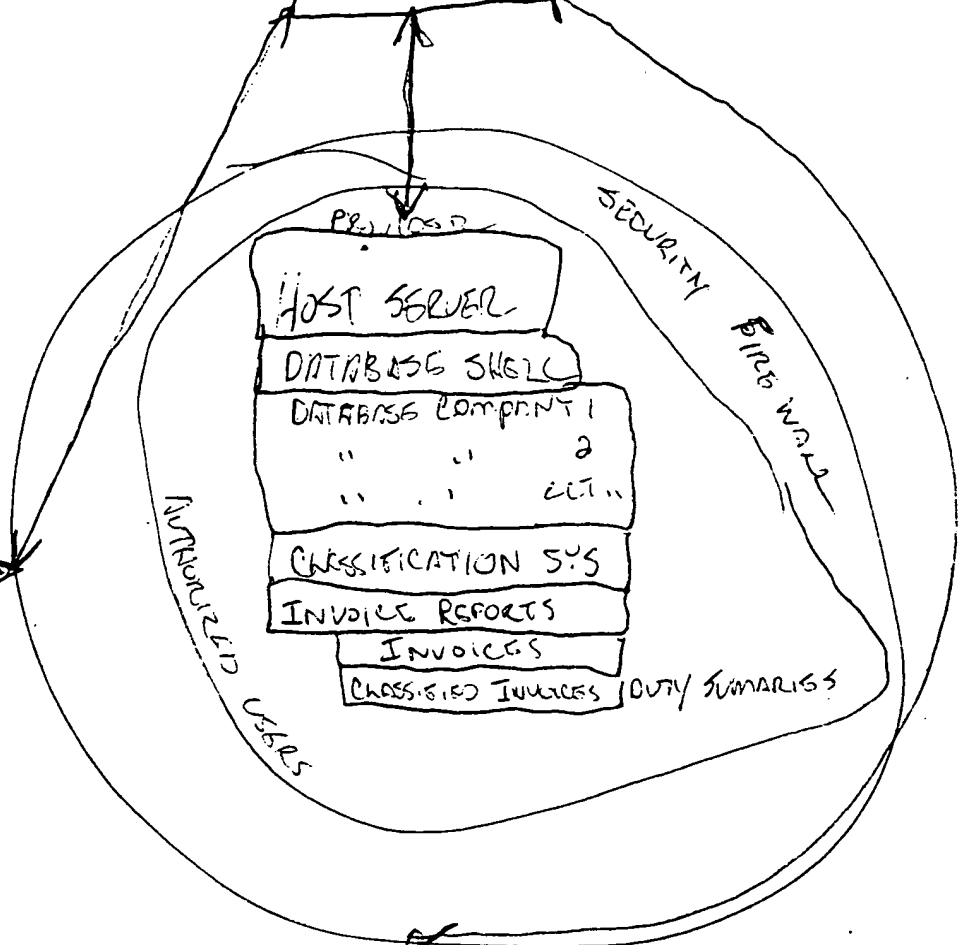 SECURITY FIRE WALL
HOST SERVER
DATABASE SHELL
DATABASE COMPANY 1
" " 2
" " ECT..
CLASSIFICATION SYS
INVOICE REPORTS
INVOICES
CLASSIFIED INVOICES / DUTY SUMARIES
AUTHORIZED USERS